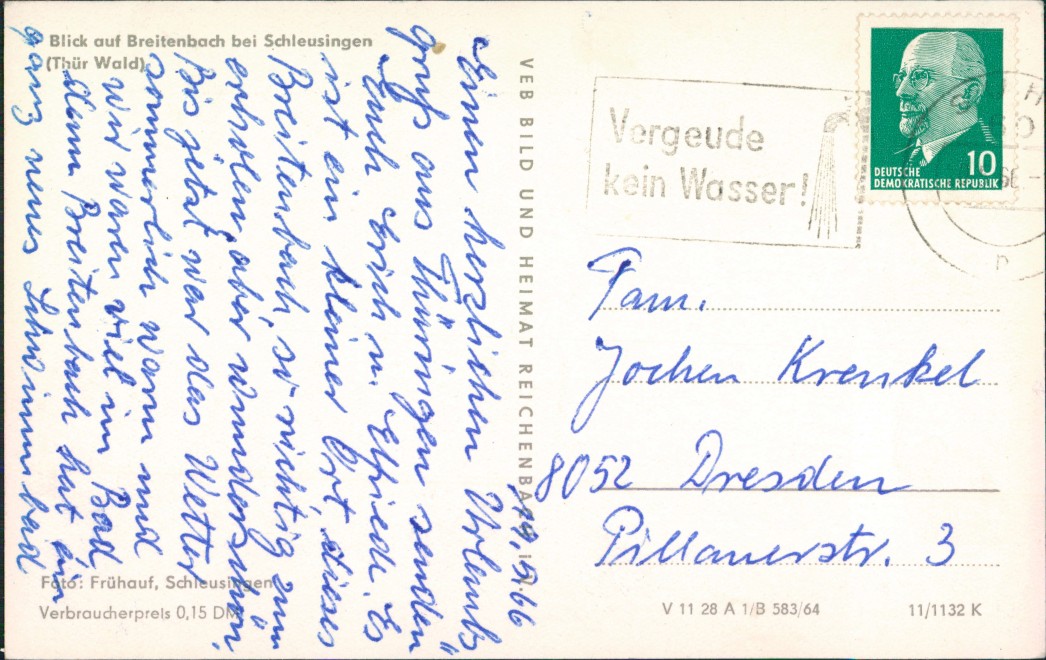 Blick auf Breitenbach bei Schleusingen
(Thür Wald)
19.5.66
Einen herzlichen Urlaubs
gruß aus Thüringen senden
Euch Erich u. Elfriede. Es
ist ein kleiner Ort dieses
Breitenbach, so richtig zum
erholen, aber wunderschön.
Bis jetzt war das Wetter
sommerlich warm und
wir waren viel im Bad
denn Breitenbach hat ein
ganz neues Schwimmbad
Foto: Frühauf, Schleusingen
Verbraucherpreis 0,15 DM
VEB BILD UND HEIMAT REICHENBACH I. V.
Vergeude
kein Wasser!
10
DEUTSCHE
DEMOKRATISCHE REPUBLIK
Fam.
Jochen Krenkel
8052 Dresden
Pillauerstr. 3
V 11 28 A 1/B 583/64
11/1132 K